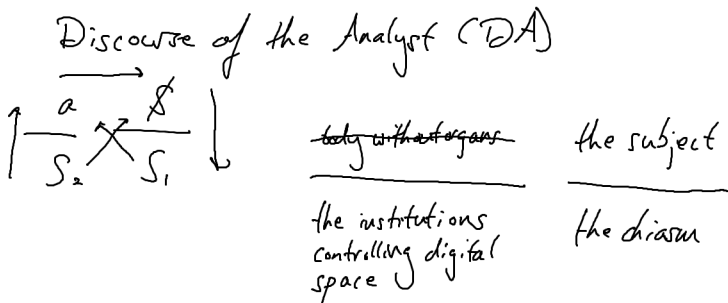 Discourse of the Analyst (DA)
a $
S₂ S₁
body without organs the subject
the institutions the chiasm
controlling digital
space